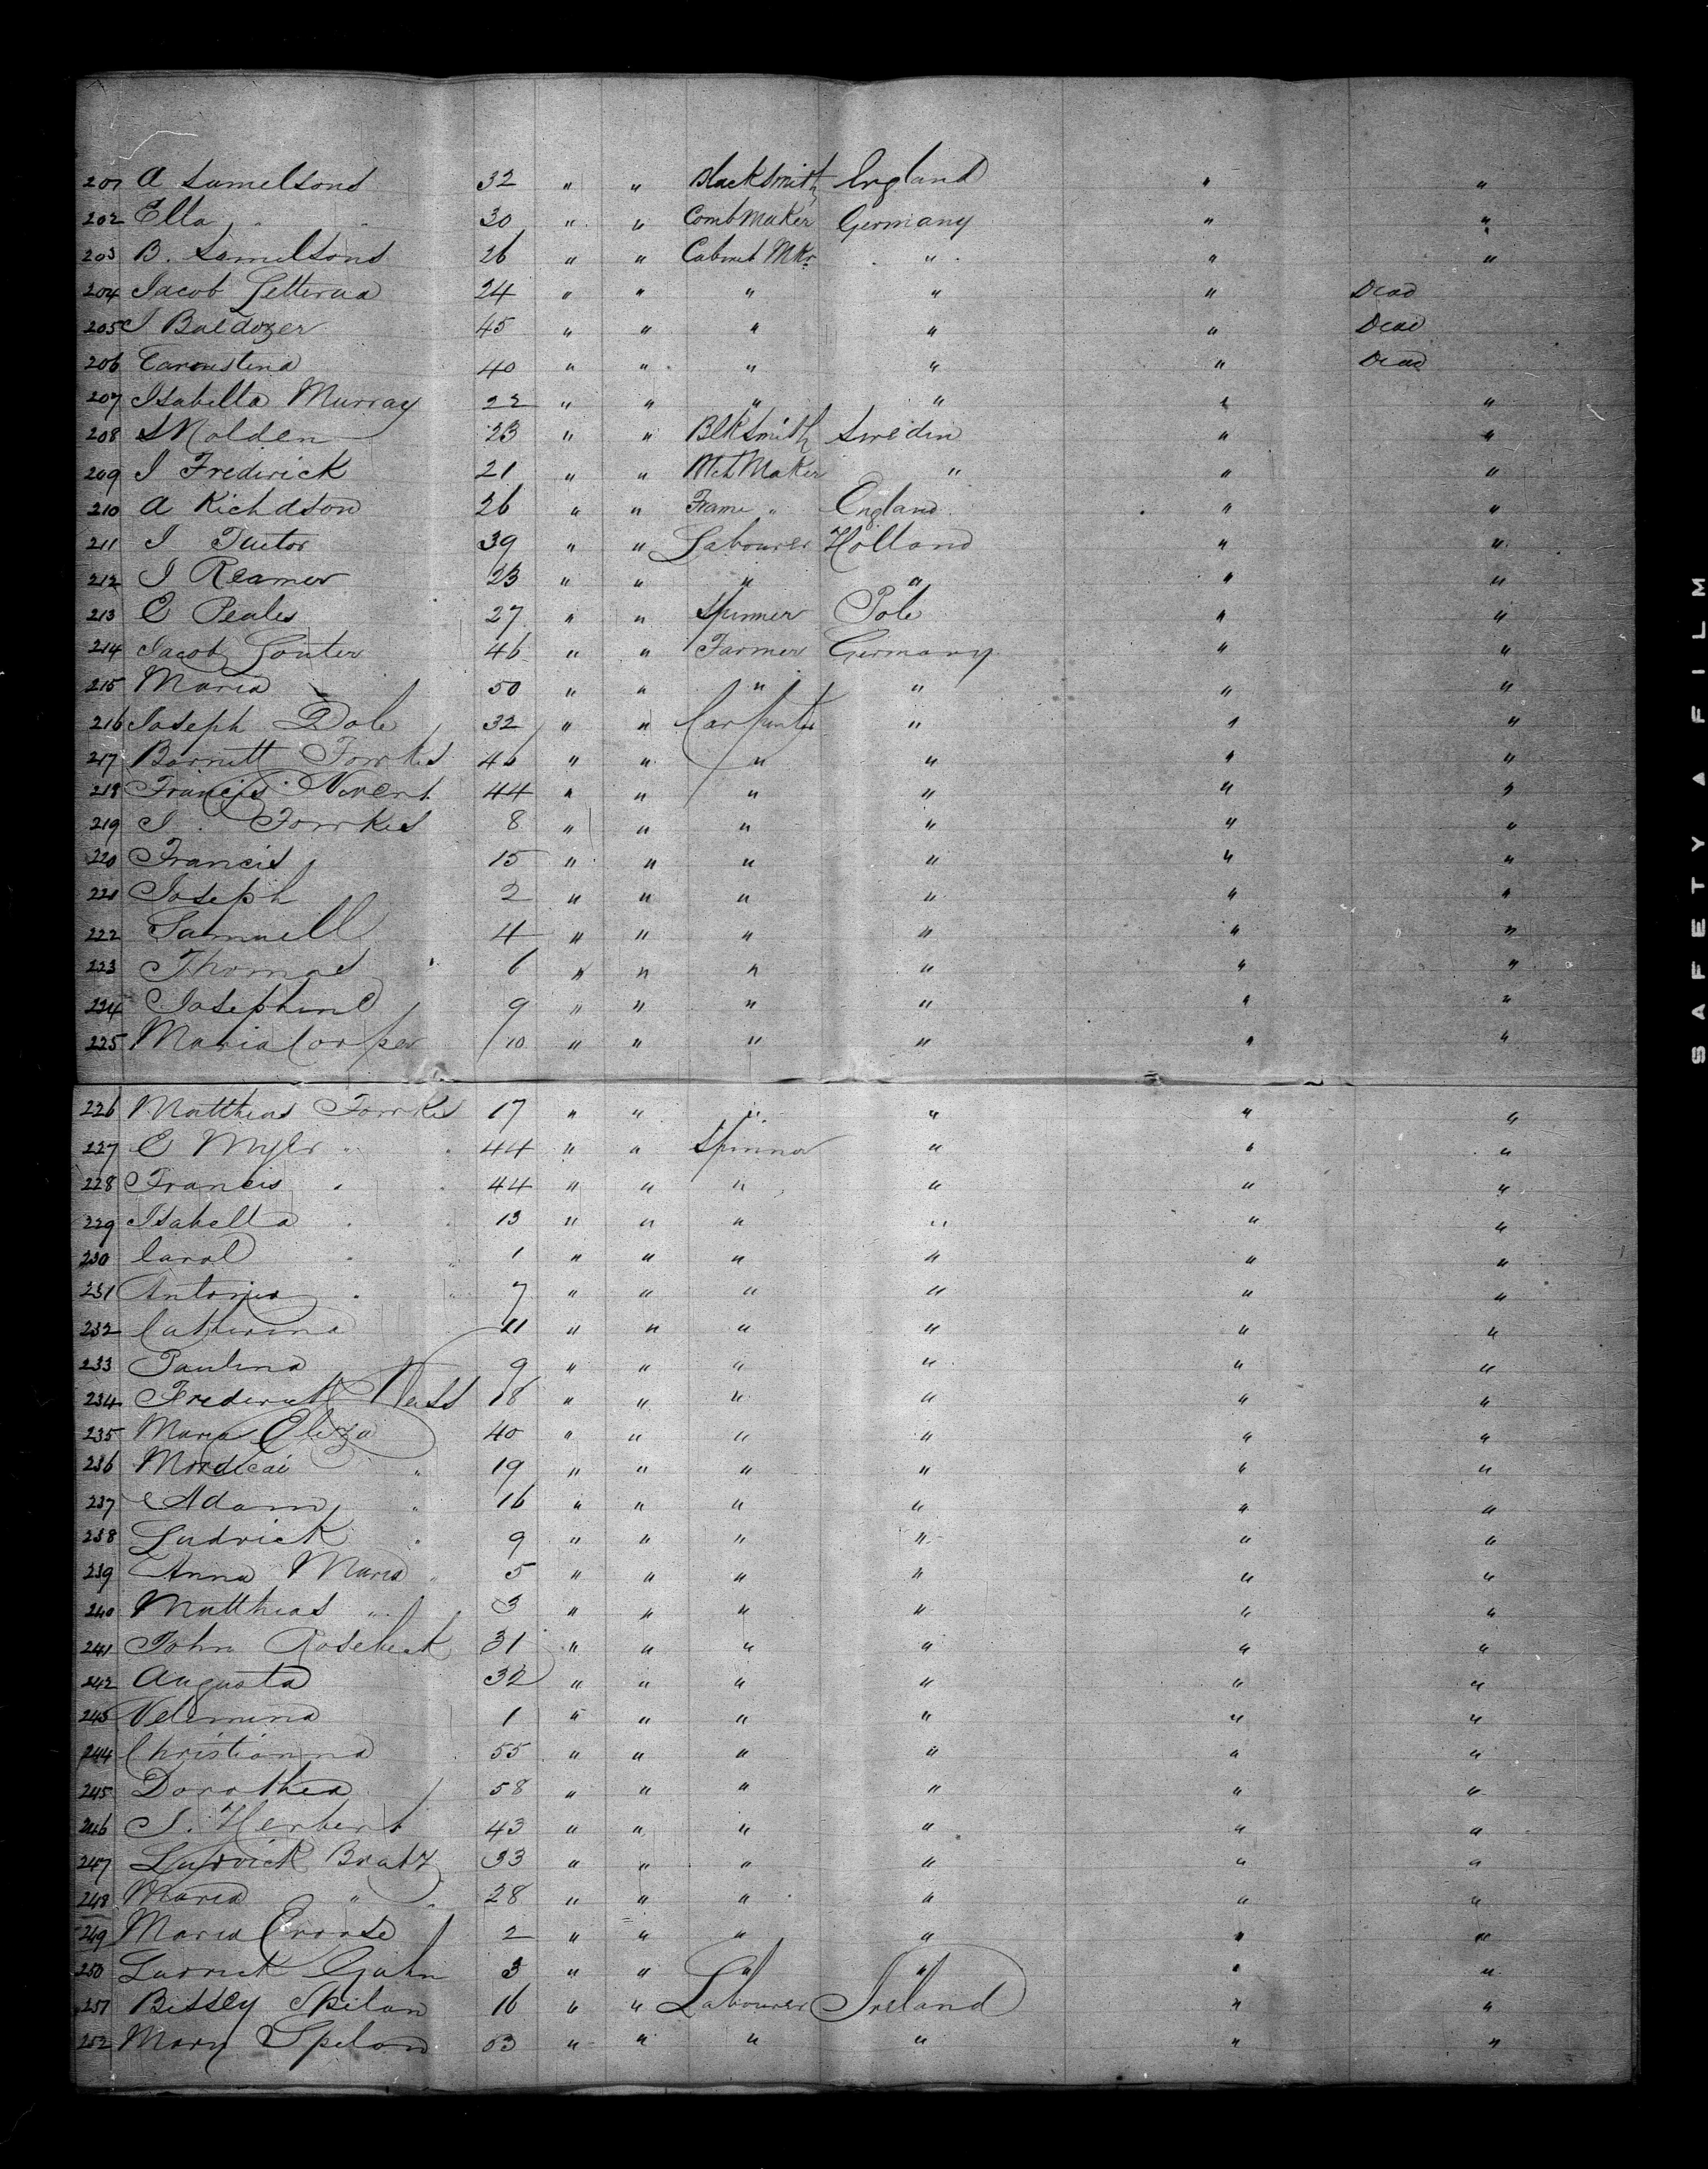 201 A Samelsons 32 " " BlackSmith England " "
202 Ella " " 30 " " Comb Maker Germany " "
203 B. Samelsons 26 " " Cabinet Mkr " " "
204 Jacob 24 " " " " " Dead
205 J Baldozer 45 " " " " " Dead
206 40 " " " " " Dead
207 Isabella Murray 22 " " " " " "
208 S Nolden 23 " " BlkSmith Sweden " "
209 J Frederick 21 " " Maker " " "
210 A Richdson 26 " " Frame " England " "
211 J Tuctor 39 " " Labourer Holland " "
212 J Reamer 23 " " " " " "
213 E Peales 27 " " Spinner Pole " "
214 Jacob Souter 46 " " Farmer Germany " "
215 Maria 50 " " " " " "
216 Joseph Dole 32 " " Carpenter " " "
217 Barnett Fowkes 46 " " " " " "
218 Francis 44 " " " " " "
219 J. Fowkes 8 " " " " " "
220 Francis 15 " " " " " "
221 Joseph 2 " " " " " "
222 Samuell 4 " " " " " "
223 Thomas 6 " " " " " "
224 Josephine 9 " " " " " "
225 Maria Corper 10 " " " " " "
226 Matthias Fowkes 17 " " " " " "
227 E Myler " " 44 " " Spinner " " "
228 Francis " " 44 " " " " " "
229 Isabella " " 13 " " " " " "
230 Carol " " 1 " " " " " "
231 Antonia " " 7 " " " " " "
232 Catherina 11 " " " " " "
233 Paulina 9 " " " " " "
234 Frederick 18 " " " " " "
235 Maria Eliza 40 " " " " " "
236 Mordecai " 19 " " " " " "
237 Adam " 16 " " " " " "
238 Ludvick " 9 " " " " " "
239 Anna Maria " 5 " " " " " "
240 Matthias " 3 " " " " " "
241 John Rosebeck 31 " " " " " "
242 Augusta 32 " " " " " "
243 Velemina 1 " " " " " "
244 Christianna 55 " " " " " "
245 Dorothea 58 " " " " " "
246 J. Herbert 43 " " " " " "
247 Ludvick Bratz 33 " " " " " "
248 Maria " " 28 " " " " " "
249 Maria 2 " " " " " "
250 Gahn 3 " " " " " "
251 Bissey Spilan 16 " " Labourer Ireland " "
252 Mary Spelan 53 " " " " " "
SAFETY ▲ FILM